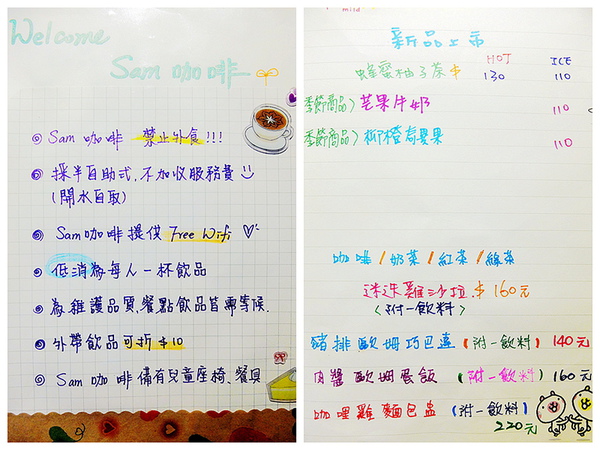 Welcome
Sam 咖啡
Sam 咖啡 禁止外食!!!
採半自助式,不加收服務費
(開水自取)
Sam咖啡提供 Free Wifi
低消為每人一杯飲品
為維護品質,餐點飲品皆需等候.
外帶飲品可折$10
Sam 咖啡備有兒童座椅、餐具
mild
新品上市
HOT ICE
蜂蜜柚子茶$ 130 110
季節商品〉芒果牛奶 110
季節商品〉柳橙百香果 110
咖啡/奶茶/紅茶/綠茶
迷迭雞沙拉.$160元
〈附一飲料〉
豬排歐姆巧巴達(附一飲料)140元
肉醬歐姆蛋飯(附一飲料)160元
咖哩雞麵包盅(附一飲料)
220元